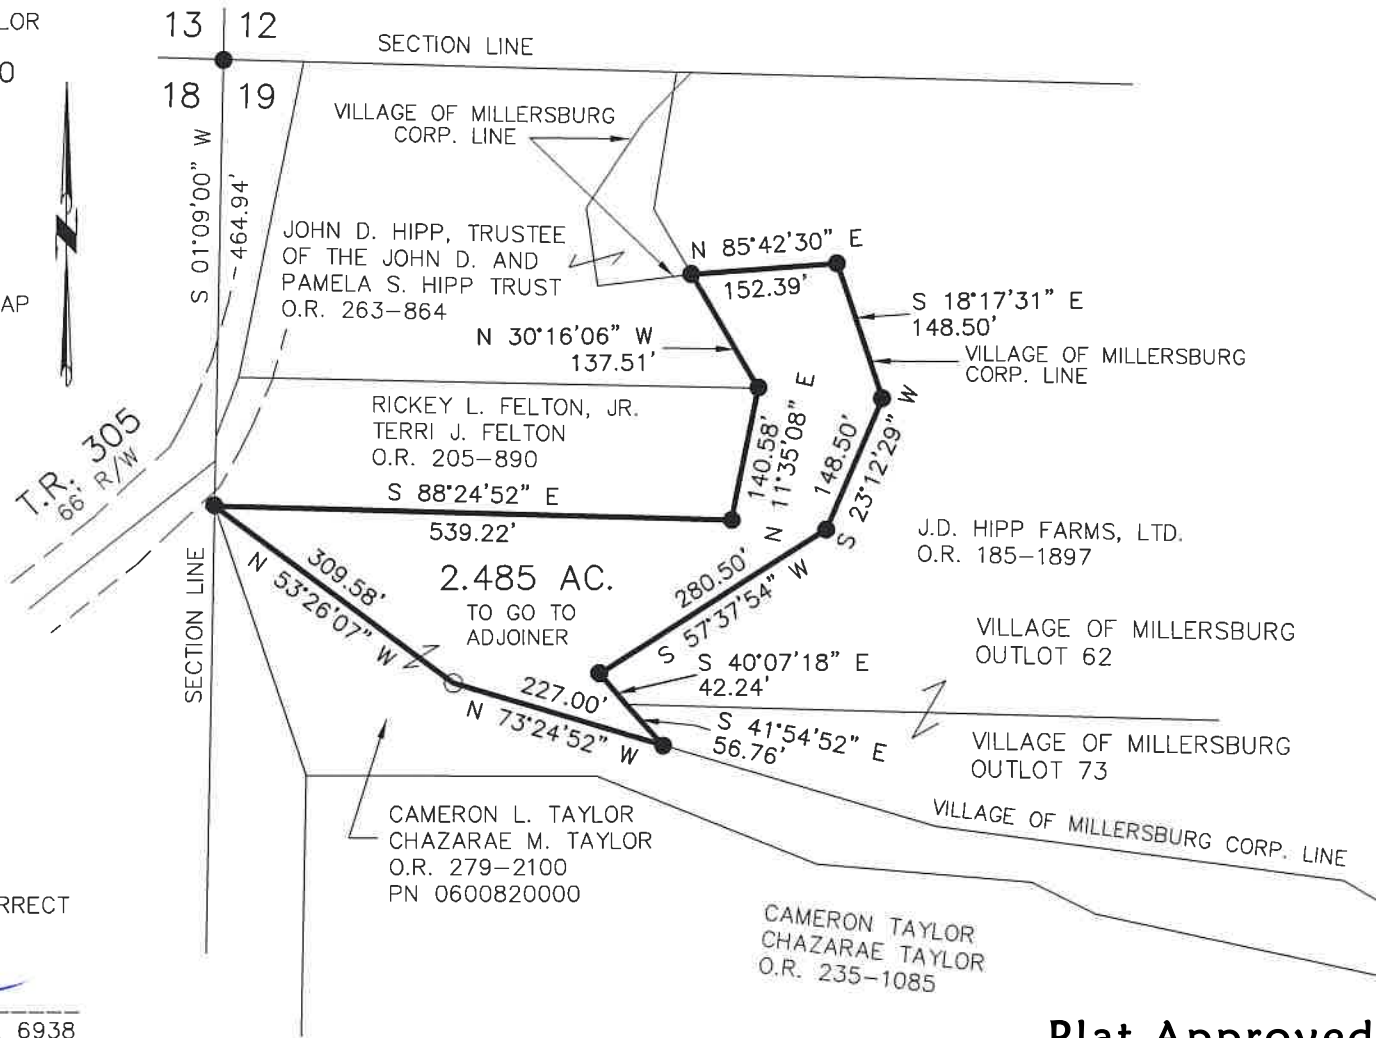 LOR
O
13 12
18 19
SECTION LINE
VILLAGE OF MILLERSBURG
CORP. LINE
S 01°09'00" W
464.94'
JOHN D. HIPP, TRUSTEE
OF THE JOHN D. AND
PAMELA S. HIPP TRUST
O.R. 263–864
N
AP
N 85°42'30" E
152.39'
S 18°17'31" E
148.50'
VILLAGE OF MILLERSBURG
CORP. LINE
N 30°16'06" W
137.51'
RICKEY L. FELTON, JR.
TERRI J. FELTON
O.R. 205–890
140.58'
N 11°35'08" E
148.50'
S 23°12'29" W
T.R. 305
66' R/W
S 88°24'52" E
539.22'
J.D. HIPP FARMS, LTD.
O.R. 185–1897
SECTION LINE
309.58'
N 53°26'07" W
2.485 AC.
TO GO TO
ADJOINER
280.50'
S 57°37'54" W
VILLAGE OF MILLERSBURG
OUTLOT 62
S 40°07'18" E
42.24'
227.00'
N 73°24'52" W
S 41°54'52" E
56.76'
VILLAGE OF MILLERSBURG
OUTLOT 73
CAMERON L. TAYLOR
CHAZARAE M. TAYLOR
O.R. 279–2100
PN 0600820000
VILLAGE OF MILLERSBURG CORP. LINE
RRECT
CAMERON TAYLOR
CHAZARAE TAYLOR
O.R. 235–1085
6938
Plat Approved